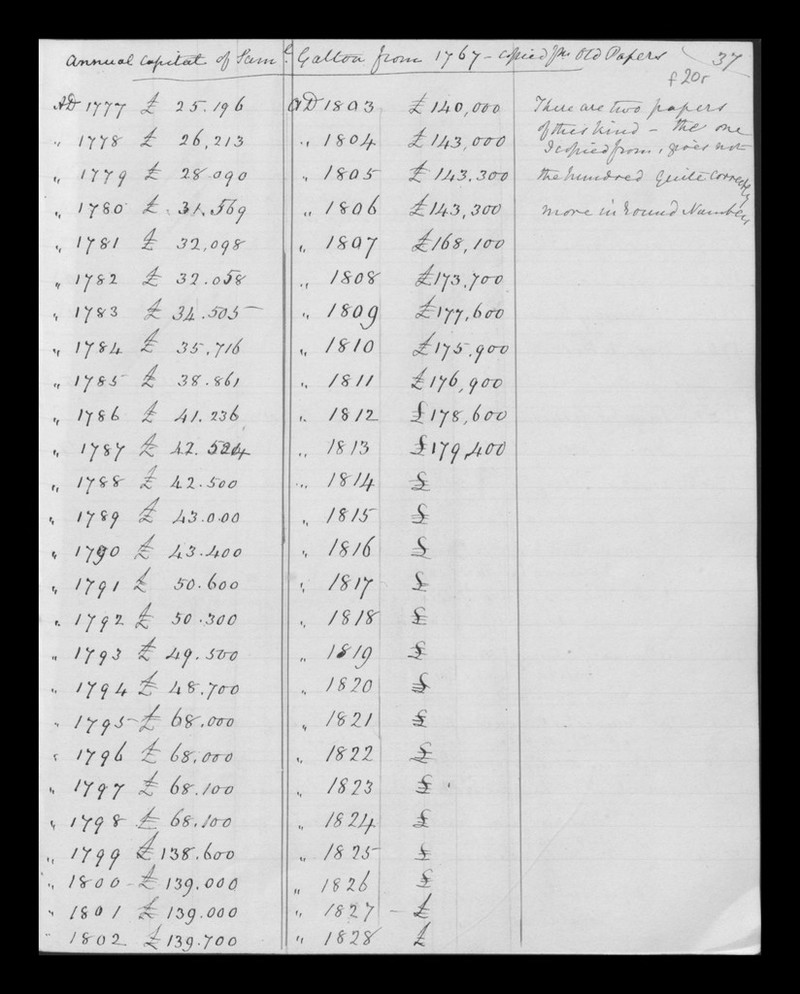 Annual Capital of Saml. Galton from 1767 – copied fm Old Papers
37
f 20r
AD 1777 £ 25.196
" 1778 £ 26,213
" 1779 £ 28.090
" 1780 £ 31.569
" 1781 £ 32,098
" 1782 £ 32.058
" 1783 £ 34.505
" 1784 £ 35,716
" 1785 £ 38.861
" 1786 £ 41.236
" 1787 £ 42.524
" 1788 £ 42.500
" 1789 £ 43.000
" 1790 £ 43.400
" 1791 £ 50.600
" 1792 £ 50.300
" 1793 £ 49.500
" 1794 £ 48.700
" 1795 £ 68.000
" 1796 £ 68.000
" 1797 £ 68.100
" 1798 £ 68.100
" 1799 £ 138.600
" 1800 £ 139.000
" 1801 £ 139.000
" 1802 £ 139.700
AD 1803 £ 140,000
" 1804 £ 143,000
" 1805 £ 143.300
" 1806 £ 143,300
" 1807 £ 168,100
" 1808 £ 173.700
" 1809 £ 177,600
" 1810 £ 175.900
" 1811 £ 176,900
" 1812 £ 178,600
" 1813 £ 179,400
" 1814 £
" 1815 £
" 1816 £
" 1817 £
" 1818 £
" 1819 £
" 1820 £
" 1821 £
" 1822 £
" 1823 £
" 1824 £
" 1825 £
" 1826 £
" 1827 – £
" 1828 £
There are two papers
of this kind – the one
I copied from, gives not
the hundred quite correctly
more in round Numbers